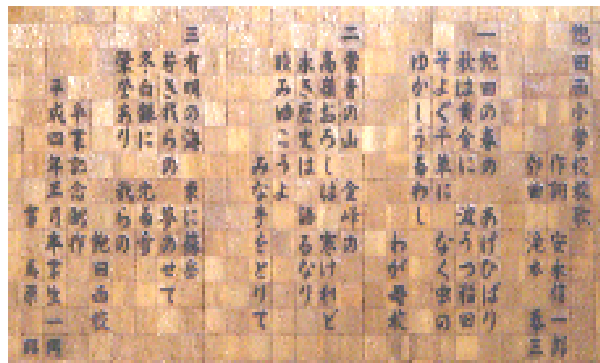 飽田西小学校校歌
作詞 安永信一郎
作曲 出本 泰三
一 飽田の春の あげひばり
秋は黄金に 波うつ稲田
そよぐ千草に なく虫の
ゆかしうるわし
わが母校
二 常青の山 金峰山
高嶺おろしは 寒けれど
永き歴史は 語るなり
践みゆこうよ
みな手をとりて
三 有明の海 東に蘇岳
若き我らの 夢のせて
不白銀に 光る雪
栄光あり 我らの
飽田西校
卒業記念制作
平成四年三月卒業生一同
書